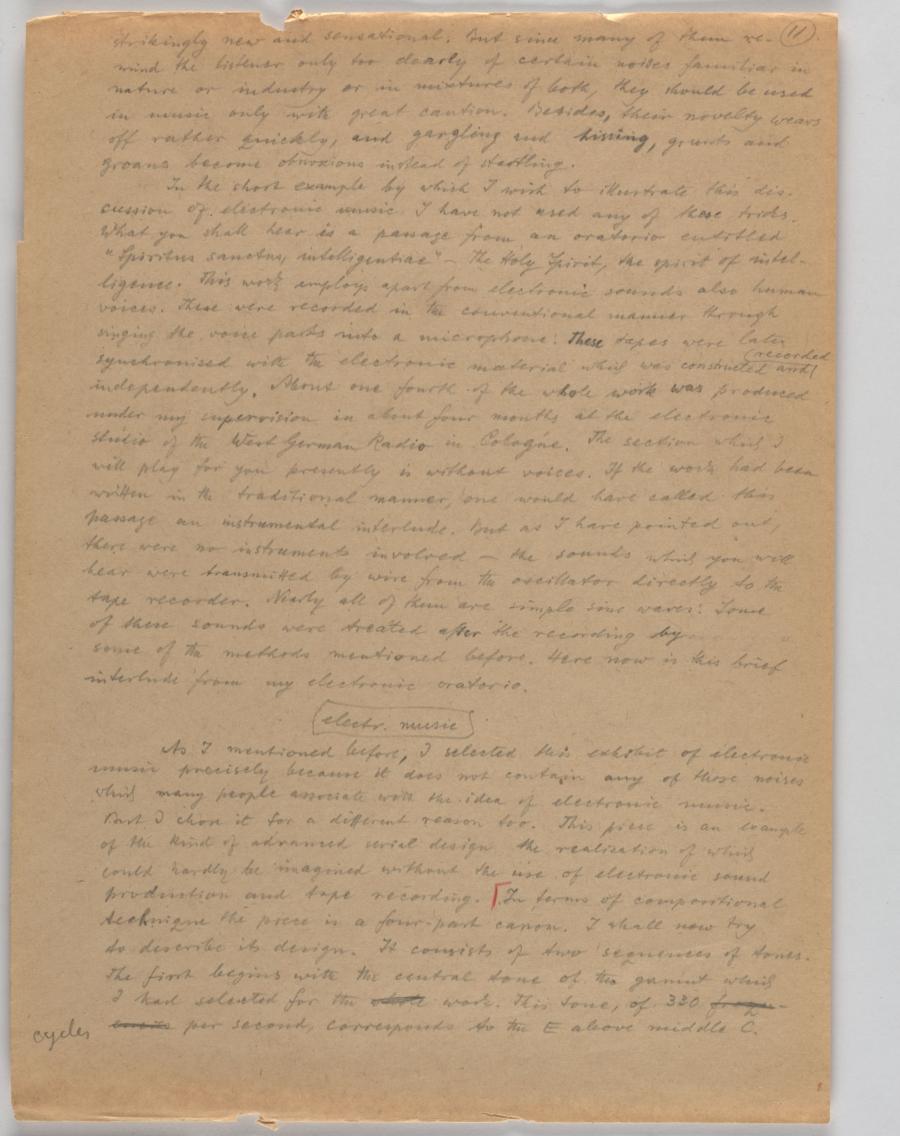 (11)
strikingly new and sensational. But since many of them re-
mind the listener only too clearly of certain noises familiar in
nature or industry or in mixtures of both, they should be used
in music only with great caution. Besides, their novelty wears
off rather quickly, and gargling and hissing, grunts and
groans become obnoxious instead of startling.
In the short example by which I wish to illustrate this dis-
cussion of electronic music I have not used any of these tricks.
What you shall hear is a passage from an oratorio entitled
"Spiritus sanctus, intelligentiae" – The Holy Spirit, the spirit of intel-
ligence. This work employs apart from electronic sounds also human
voices. These were recorded in the conventional manner through
singing the voice parts into a microphone. These tapes were later
(recorded
synchronised with the electronic material which was constructed and
independently. About one fourth of the whole work was produced
under my supervision in about four months at the electronic
studio of the West German Radio in Cologne. The section which I
will play for you presently is without voices. If the work had been
written in the traditional manner, one would have called this
passage an instrumental interlude. But as I have pointed out,
there were no instruments involved – the sounds which you will
hear were transmitted by wire from the oscillator directly to the
tape recorder. Nearly all of them are simple sine waves. Some
of these sounds were treated after the recording by
some of the methods mentioned before. Here now is this brief
interlude from my electronic oratorio.
electr. music
As I mentioned before, I selected this exhibit of electronic
music precisely because it does not contain any of those noises
which many people associate with the idea of electronic music.
But I chose it for a different reason too. This piece is an example
of the kind of advanced serial design the realization of which
could hardly be imagined without the use of electronic sound
production and tape recording. [In terms of compositional
technique the piece is a four-part canon. I shall now try
to describe its design. It consists of two sequences of tones.
The first begins with the central tone of the gamut which
I had selected for the whole work. This tone, of 330 frequ-
cycles encies per second, corresponds to the E above middle C.